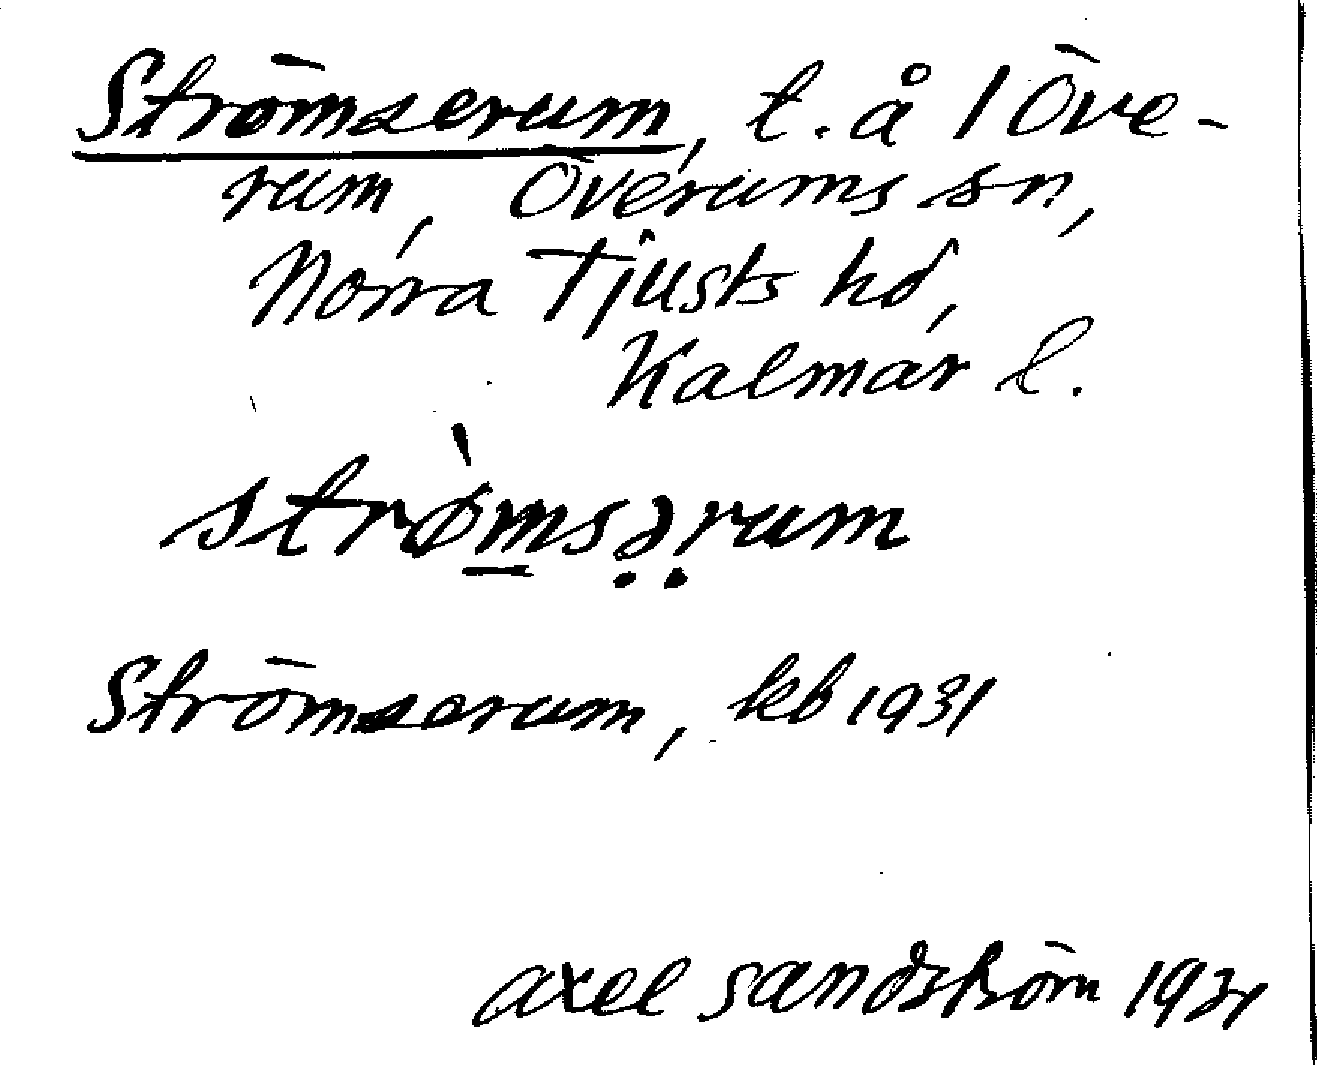 Strömserum, t. å 1 Öve-
rum, Överums sn,
Norra Tjusts hd,
Kalmar l.
strø̀m̲sə̣ṛum
Strömserum, kb 1931
axel sandström 1931